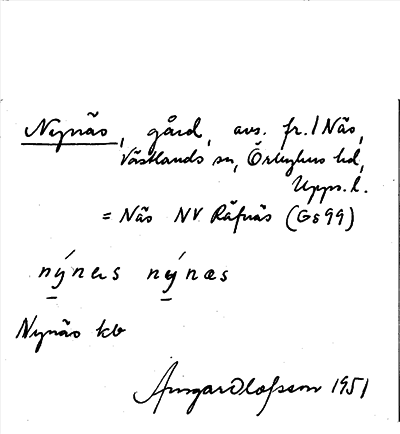 Nynäs, gård, avs. fr. 1 Näs,
Västlands sn, Örbyhus hd,
Upps. l.
= Näs NV Räfnäs (Gs 99)
nýnɛs nýnæs
Nynäs kb
Ansgar Olofsson 1951